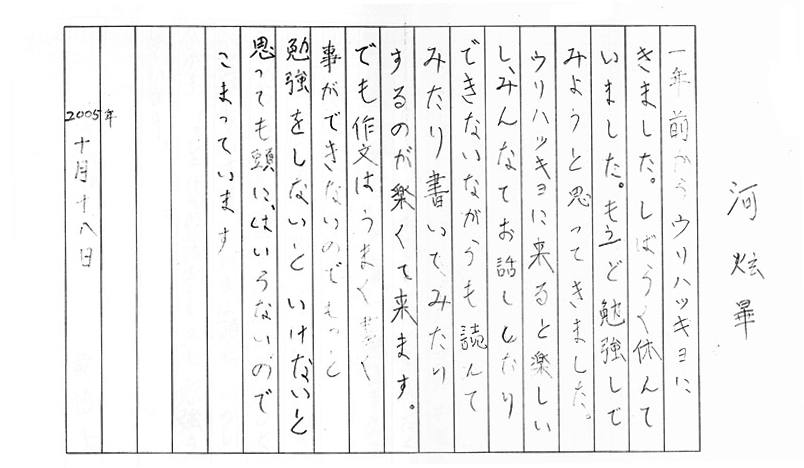 河炫畢
一年前からウリハッキョに
きました。しばらく休んで
いました。もう一ど勉強して
みようと思ってきました。
ウリハッキョに来ると楽しい
し、みんなでお話ししたり
できないながらも読んで
みたり書いてみたり
するのが楽くて来ます。
でも作文はうまく書く
事ができないのでもっと
勉強をしないといけないと
思っても頭に、はいらないので
こまっています
2005年
十月十八日